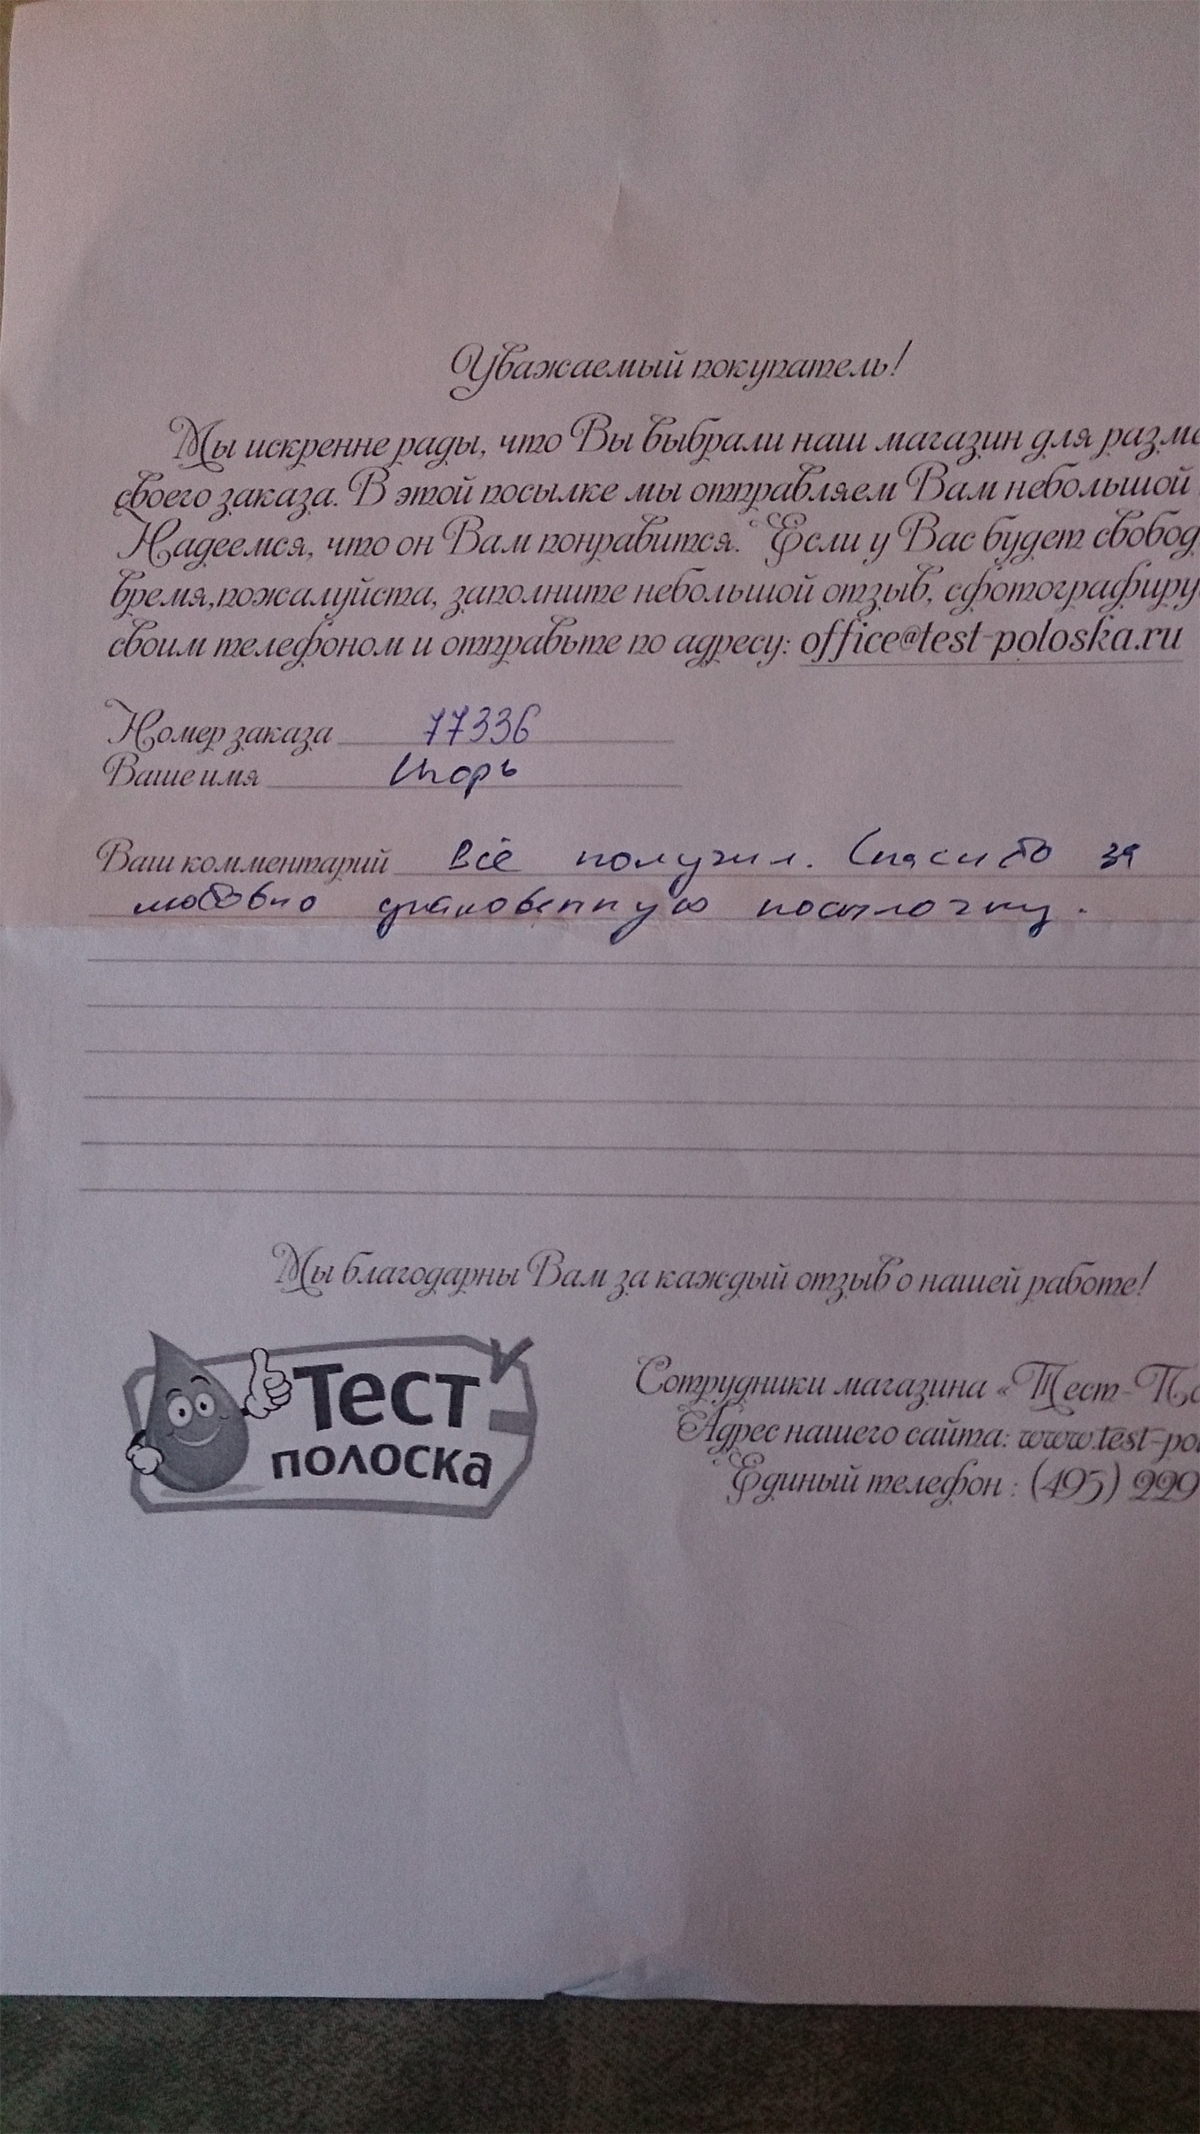 Уважаемый покупатель!
Мы искренне рады, что Вы выбрали наш магазин для разме
своего заказа. В этой посылке мы отправляем Вам небольшой
Надеемся, что он Вам понравится. Если у Вас будет свобод
время,пожалуйста, заполните небольшой отзыв, сфотографируй
своим телефоном и отправьте по адресу: office@test-poloska.ru
Номер заказа 77336
Ваше имя Игорь
Ваш комментарий Всё получил. Спасибо за
любовно упакованную посылочку.
Мы благодарны Вам за каждый отзыв о нашей работе!
Тест
полоска
Сотрудники магазина «Тест-По
Адрес нашего сайта: www.test-po
Единый телефон : (495) 229